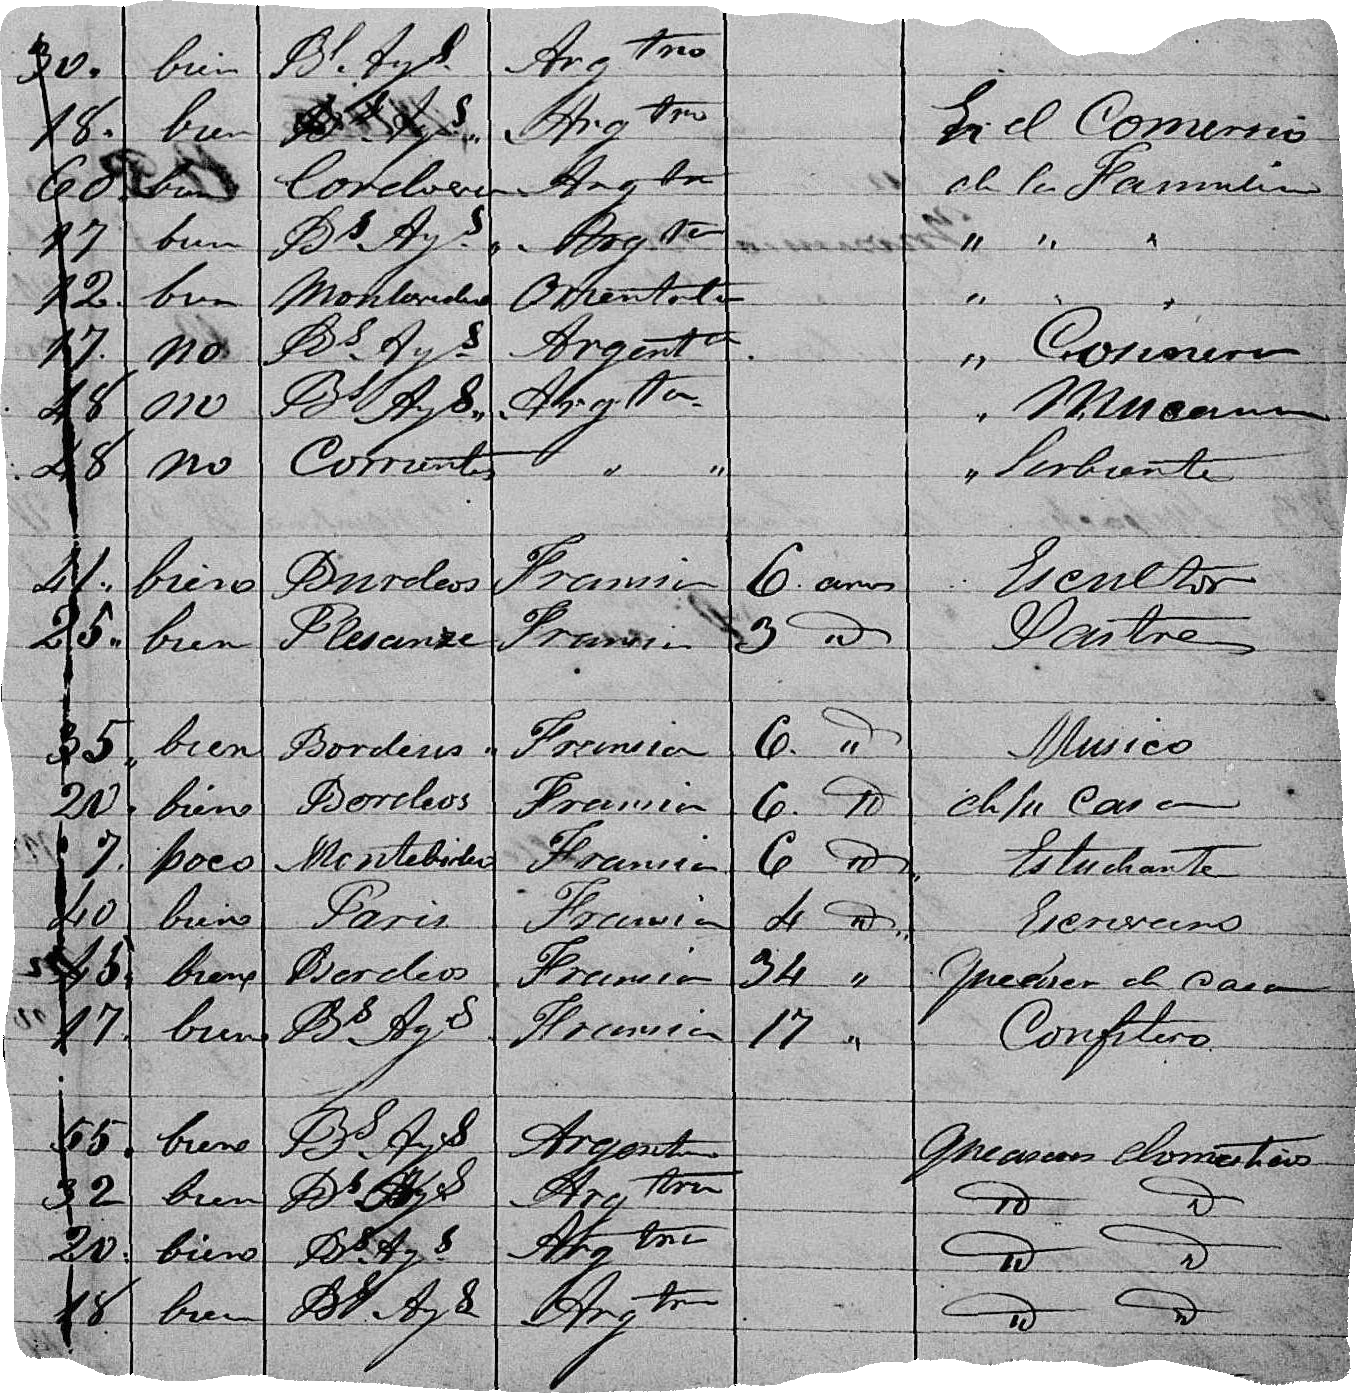 30. bien Bs. Ays. Argtno
18. bien Bs. Ays. Argtno En el Comersio
60. bien Cordovesa Argtn de la Familia
17 bien Bs. Ays. Argtn " " "
12. bien Montevideo Orientala " " "
17. no Bs. Ays. Argenta " Cosinera
48 no Bs. Ays. Argta. " Mucama
48 no Corrientes " " " Sirbiente
41. biene Burdeos Fransia 6. años Escultor
25. bien Fransia 3 " Sastre
35 bien Bordeus Fransia 6. " Musico
20. biene Bordeos Fransia 6. " de su Casa
7. poco Montebideo Fransia 6 " Estudiante
40 biene Paris Fransia 4 " Escrivano
45. biene Bordeos Fransia 34 " queaser de casa
17. biene Bs. Ays Fransia 17 " Confitero
55. biene Bs. Ays Argentn queaseres domesticos
32 bien Bs. Ays Argtna " "
20. biene Bs. Ays Argtna " "
18 bien Bs. Ays Argtna " "